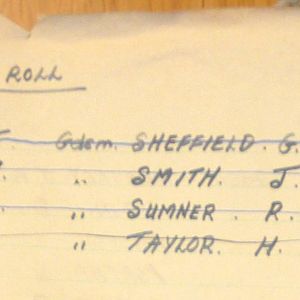 ROLL
Gdsm. SHEFFIELD. G.
" SMITH. J.
" SUMNER. R.
" TAYLOR. H.